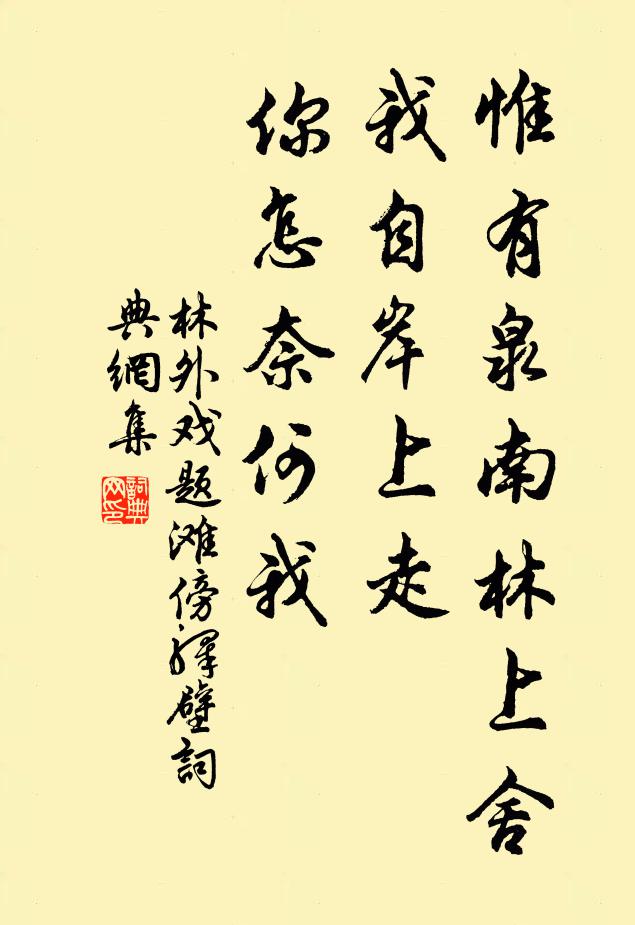 惟有泉南林上舍
我自岸上走
你怎奈何我
林外戏题滩傍驿壁詞
典網集
詞典
网印